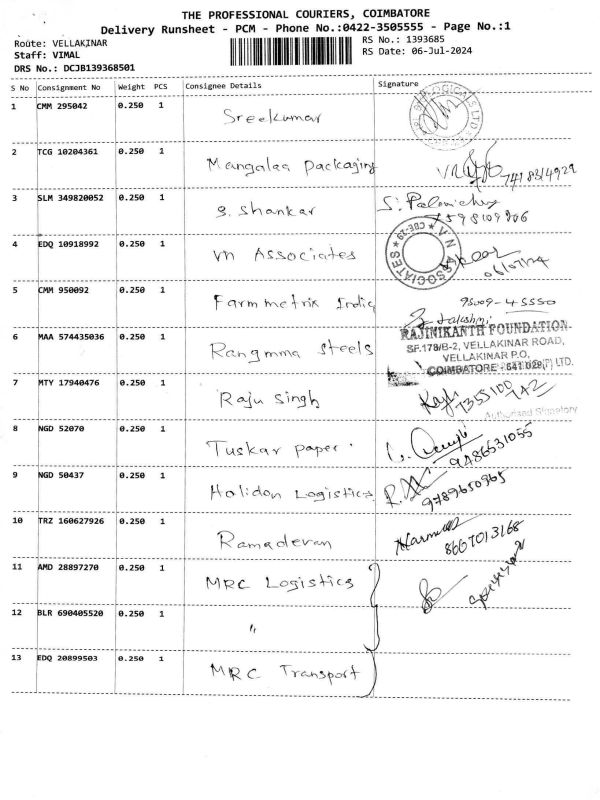 THE PROFESSIONAL COURIERS, COIMBATORE
Delivery Runsheet - PCM - Phone No.:0422-3505555 - Page No.:1
Route: VELLAKINAR
RS No.: 1393685
Staff: VIMAL
RS Date: 06-Jul-2024
DRS No.: DCJB139368501
S No Consignment No Weight PCS Consignee Details Signature
1 CMM 295042 0.250 1 Sreekumar
2 TCG 10204361 0.250 1 Mangalaa packaging 7418314929
3 SLM 349820052 0.250 1 S. Shankar
7598109806
4 EDQ 10918992 0.250 1 VN Associates
V N ASSOCIATES CBE-29
06/07/24
5 CMM 950092 0.250 1 Farmmetrix India 95009-45550
RAJINIKANTH FOUNDATION
SF.178/B-2, VELLAKINAR ROAD,
VELLAKINAR P.O,
COIMBATORE - 641 029. LTD.
6 MAA 574435036 0.250 1 Rangmma Steels
7 MTY 17940476 0.250 1 Raju Singh
7355100742
Authorised Signatory
8 NGD 52070 0.250 1 Tuskar paper
9486531055
9 NGD 50437 0.250 1 Halidon Logistics
9789650965
10 TRZ 160627926 0.250 1 Ramadevan
8667013168
11 AMD 28897270 0.250 1 MRC Logistics
12 BLR 690405520 0.250 1 "
13 EDQ 20899503 0.250 1 MRC Transport